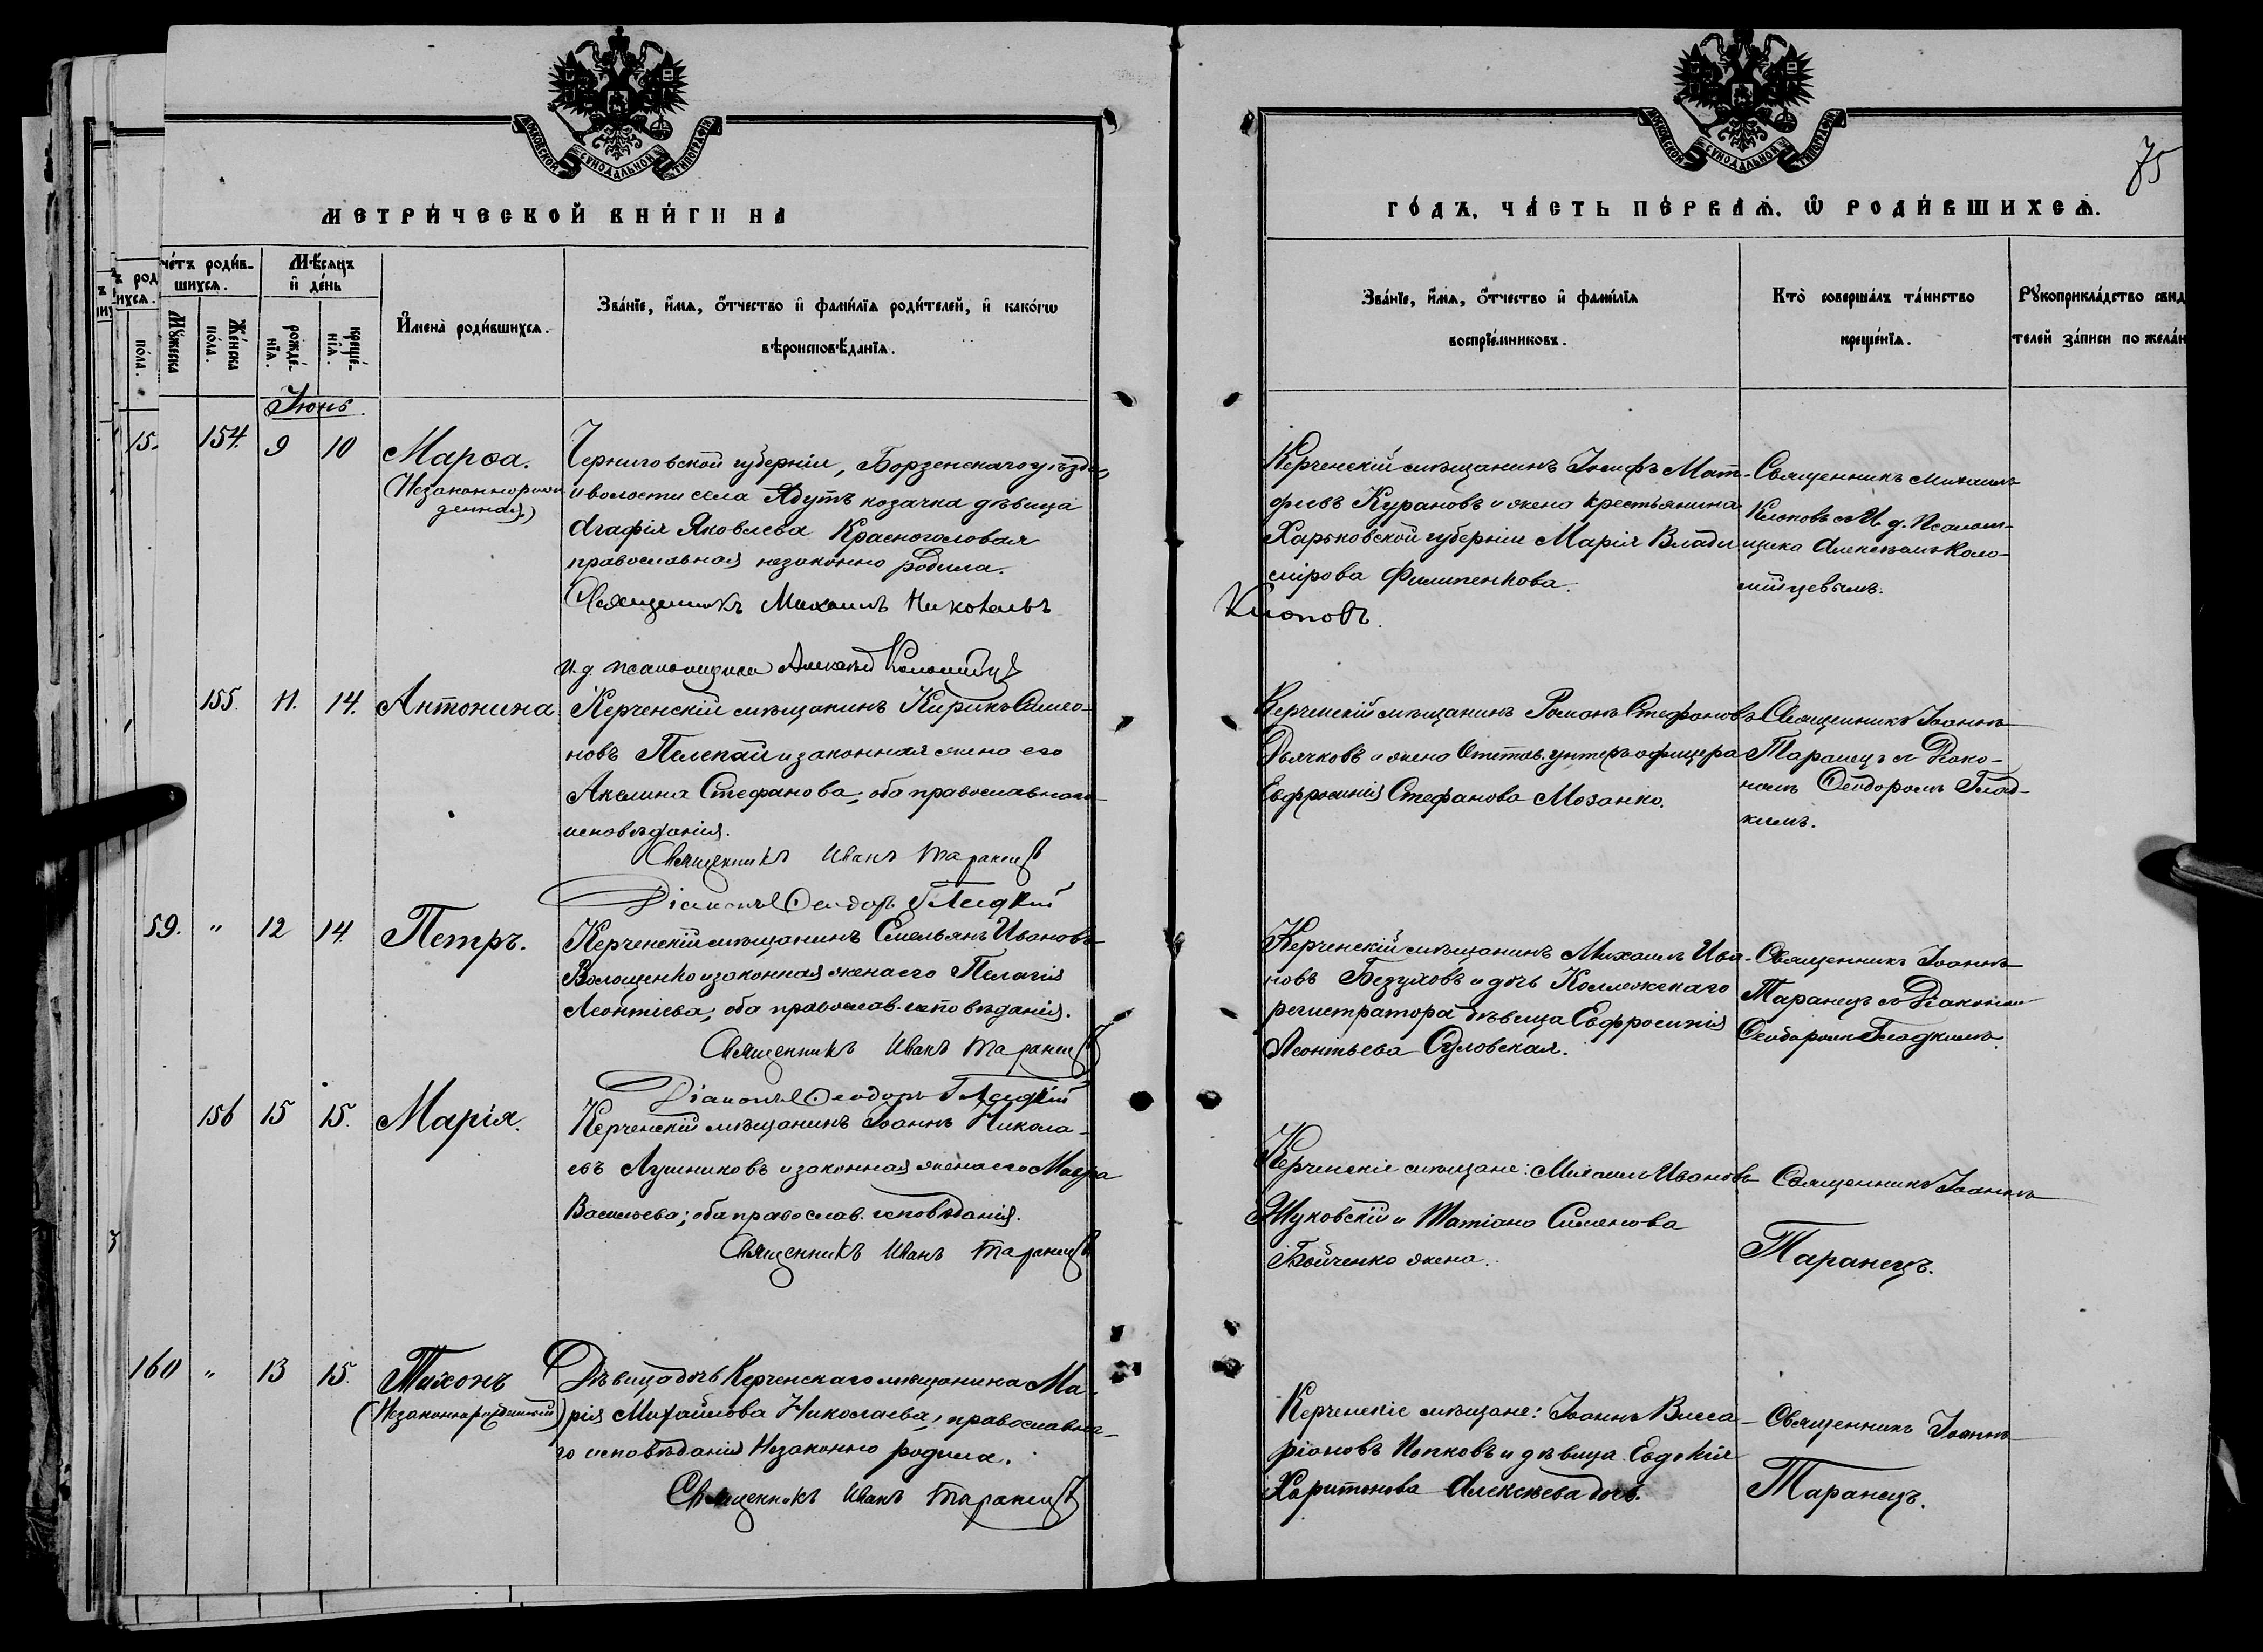 МОСКОВСКОЙ СѴНОДАЛЬНОЙ ТИПОГРАФІИ
МЕТРИ́ЧЕСКОЙ КНИ́ГИ НА
че́тъ роди́в-
шихся.
Му́жеска
по́ла.
Же́нска
по́ла.
Мѣ́сяцъ
и҆ де́нь
рожде́-
нїя.
креще́-
нїя.
И҆мена̀ роди́вшихся.
Зва́нїе, и҆́мя, ѻ҆́тчество и҆ фамѝлїя роди́телей, и҆ како́гѡ
вѣроисповѣ́данїя.
Іюнь.
154. 9 10 Марѳа.
(Незаконнорож
денная)
Черниговской губерніи, Борзенскаго уѣзда
и волости села Ядутъ козачка дѣвица
Агафія Яковлева Красноголовая
православная незаконно родила.
Священникъ Михаилъ Николаевъ
И. д. псаломщика Алексѣй Коломійцевъ
155. 11. 14. Антонина
Керченскій мѣщанинъ Кирикъ Симео-
новъ Пелепай и законная жена его
Акелина Стефанова; оба православнаго
исповѣданія.
Священникъ Иванъ Таранецъ
Діаконъ Ѳеодоръ Гладкій
59. " 12 14. Петръ.
Керченскій мѣщанинъ Емельянъ Ивановъ
Волощенко и законная жена его Пелагія
Леонтіева; оба православ. исповѣданія.
Священникъ Иванъ Таранецъ
Діаконъ Ѳеодоръ Гладкій
156 15 15. Марія.
Керченскій мѣщанинъ Іоаннъ Никола-
евъ Лушниковъ и законная жена его Мавра
Васильева; оба православ. исповѣданія.
Священникъ Иванъ Таранецъ
160 " 13 15. Тихонъ
(Незаконнорожденный)
Дѣвица дочь Керченскаго мѣщанина Ма-
рія Михайлова Николаева, православна-
го исповѣданія Незаконно родила.
Священникъ Иванъ Таранецъ
МОСКОВСКОЙ СѴНОДАЛЬНОЙ ТИПОГРАФІИ
75
ГО́ДЪ, ЧА́СТЬ ПЕ́РВАЯ, Ѡ РОДИ́ВШИХСЯ.
Зва́нїе, и҆́мя, ѻ҆́тчество и҆ фамѝлїя
воспрїе́мниковъ.
Кто̀ соверша́лъ та́инство
креще́нїя.
Рꙋкоприкла́дство свид
телей за́писи по жела́н
Керченскій мѣщанинъ Іосифъ Мат-
фіевъ Курановъ и жена крестьянина
Харьковской губерніи Марія Влади
мірова Филипенкова.
Клоповъ.
Священникъ Михаилъ
Клоповъ съ И. д. Псалом-
щика Алексѣемъ Коло-
мійцевымъ.
Керченскій мѣщанинъ Романъ Стефановъ
Дьячковъ и жена Отстав. унтеръ офицера
Евфросинія Стефанова Мозанко.
Священникъ Іоаннъ
Таранецъ съ Діако-
номъ Ѳеодоромъ Глад-
кимъ.
Керченскій мѣщанинъ Михаилъ Ива-
новъ Безуховъ и дочь Коллежскаго
регистратора дѣвица Евфросинія
Леонтьева Орловская.
Священникъ Іоаннъ
Таранецъ съ Діакономъ
Ѳеодоромъ Гладкимъ.
Керченскіе мѣщане: Михаилъ Ивановъ
Жуковскій и Татіана Симонова
Бойченко жена.
Священникъ Іоаннъ
Таранецъ.
Керченскіе мѣщане: Іоаннъ Висса-
ріоновъ Попковъ и дѣвица Евдокія
Харитонова Алексѣева дочь.
Священникъ Іоаннъ
Таранецъ.